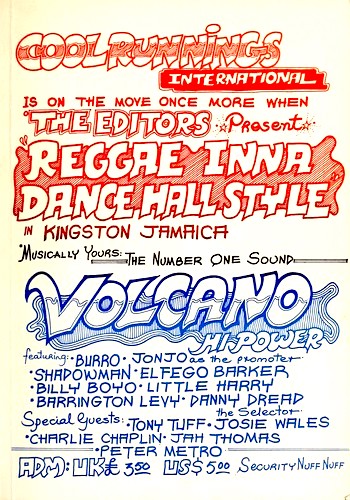 COOL RUNNINGS
INTERNATIONAL
IS ON THE MOVE ONCE MORE WHEN
"THE EDITORS" ☆Present☆
"REGGAE INNA
DANCE HALL STYLE"
IN KINGSTON JAMAICA
"MUSICALLY YOURS: THE NUMBER ONE SOUND
VOLCANO
HI-POWER
featuring: • BURRO • JONJO as the promoter
• SHADOWMAN • ELFEGO BARKER
• BILLY BOYO • LITTLE HARRY
• BARRINGTON LEVY • DANNY DREAD
the Selector
Special Guests: TONY TUFF • JOSIE WALES
• CHARLIE CHAPLIN • JAH THOMAS
• PETER METRO
ADM: UK£ 3.50 US$ 5.00 SECURITY NUFF NUFF